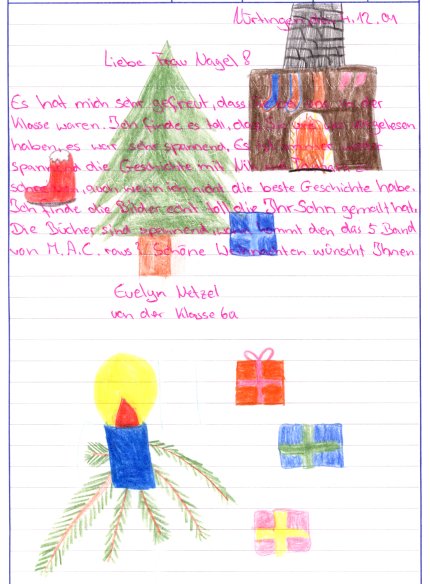 Nürtingen den 4.12.01
Liebe Frau Nagel 8
Es hat mich sehr gefreut, dass Sie bei uns in der
Klasse waren. Ich finde es toll, dass Sie uns vorgelesen
haben, es war sehr spannend. Es ist immer
spannend die Geschichte mit
schreiben, auch wenn ich nicht die beste Geschichte habe.
Ich finde die Bilder echt toll die Ihr Sohn gemalt hat.
Die Bücher sind spannend, wann kommt den das 5. Band
von M.A.C. raus? Schöne Weihnachten wünscht Ihnen
Evelyn Netzel
von der Klasse 6a